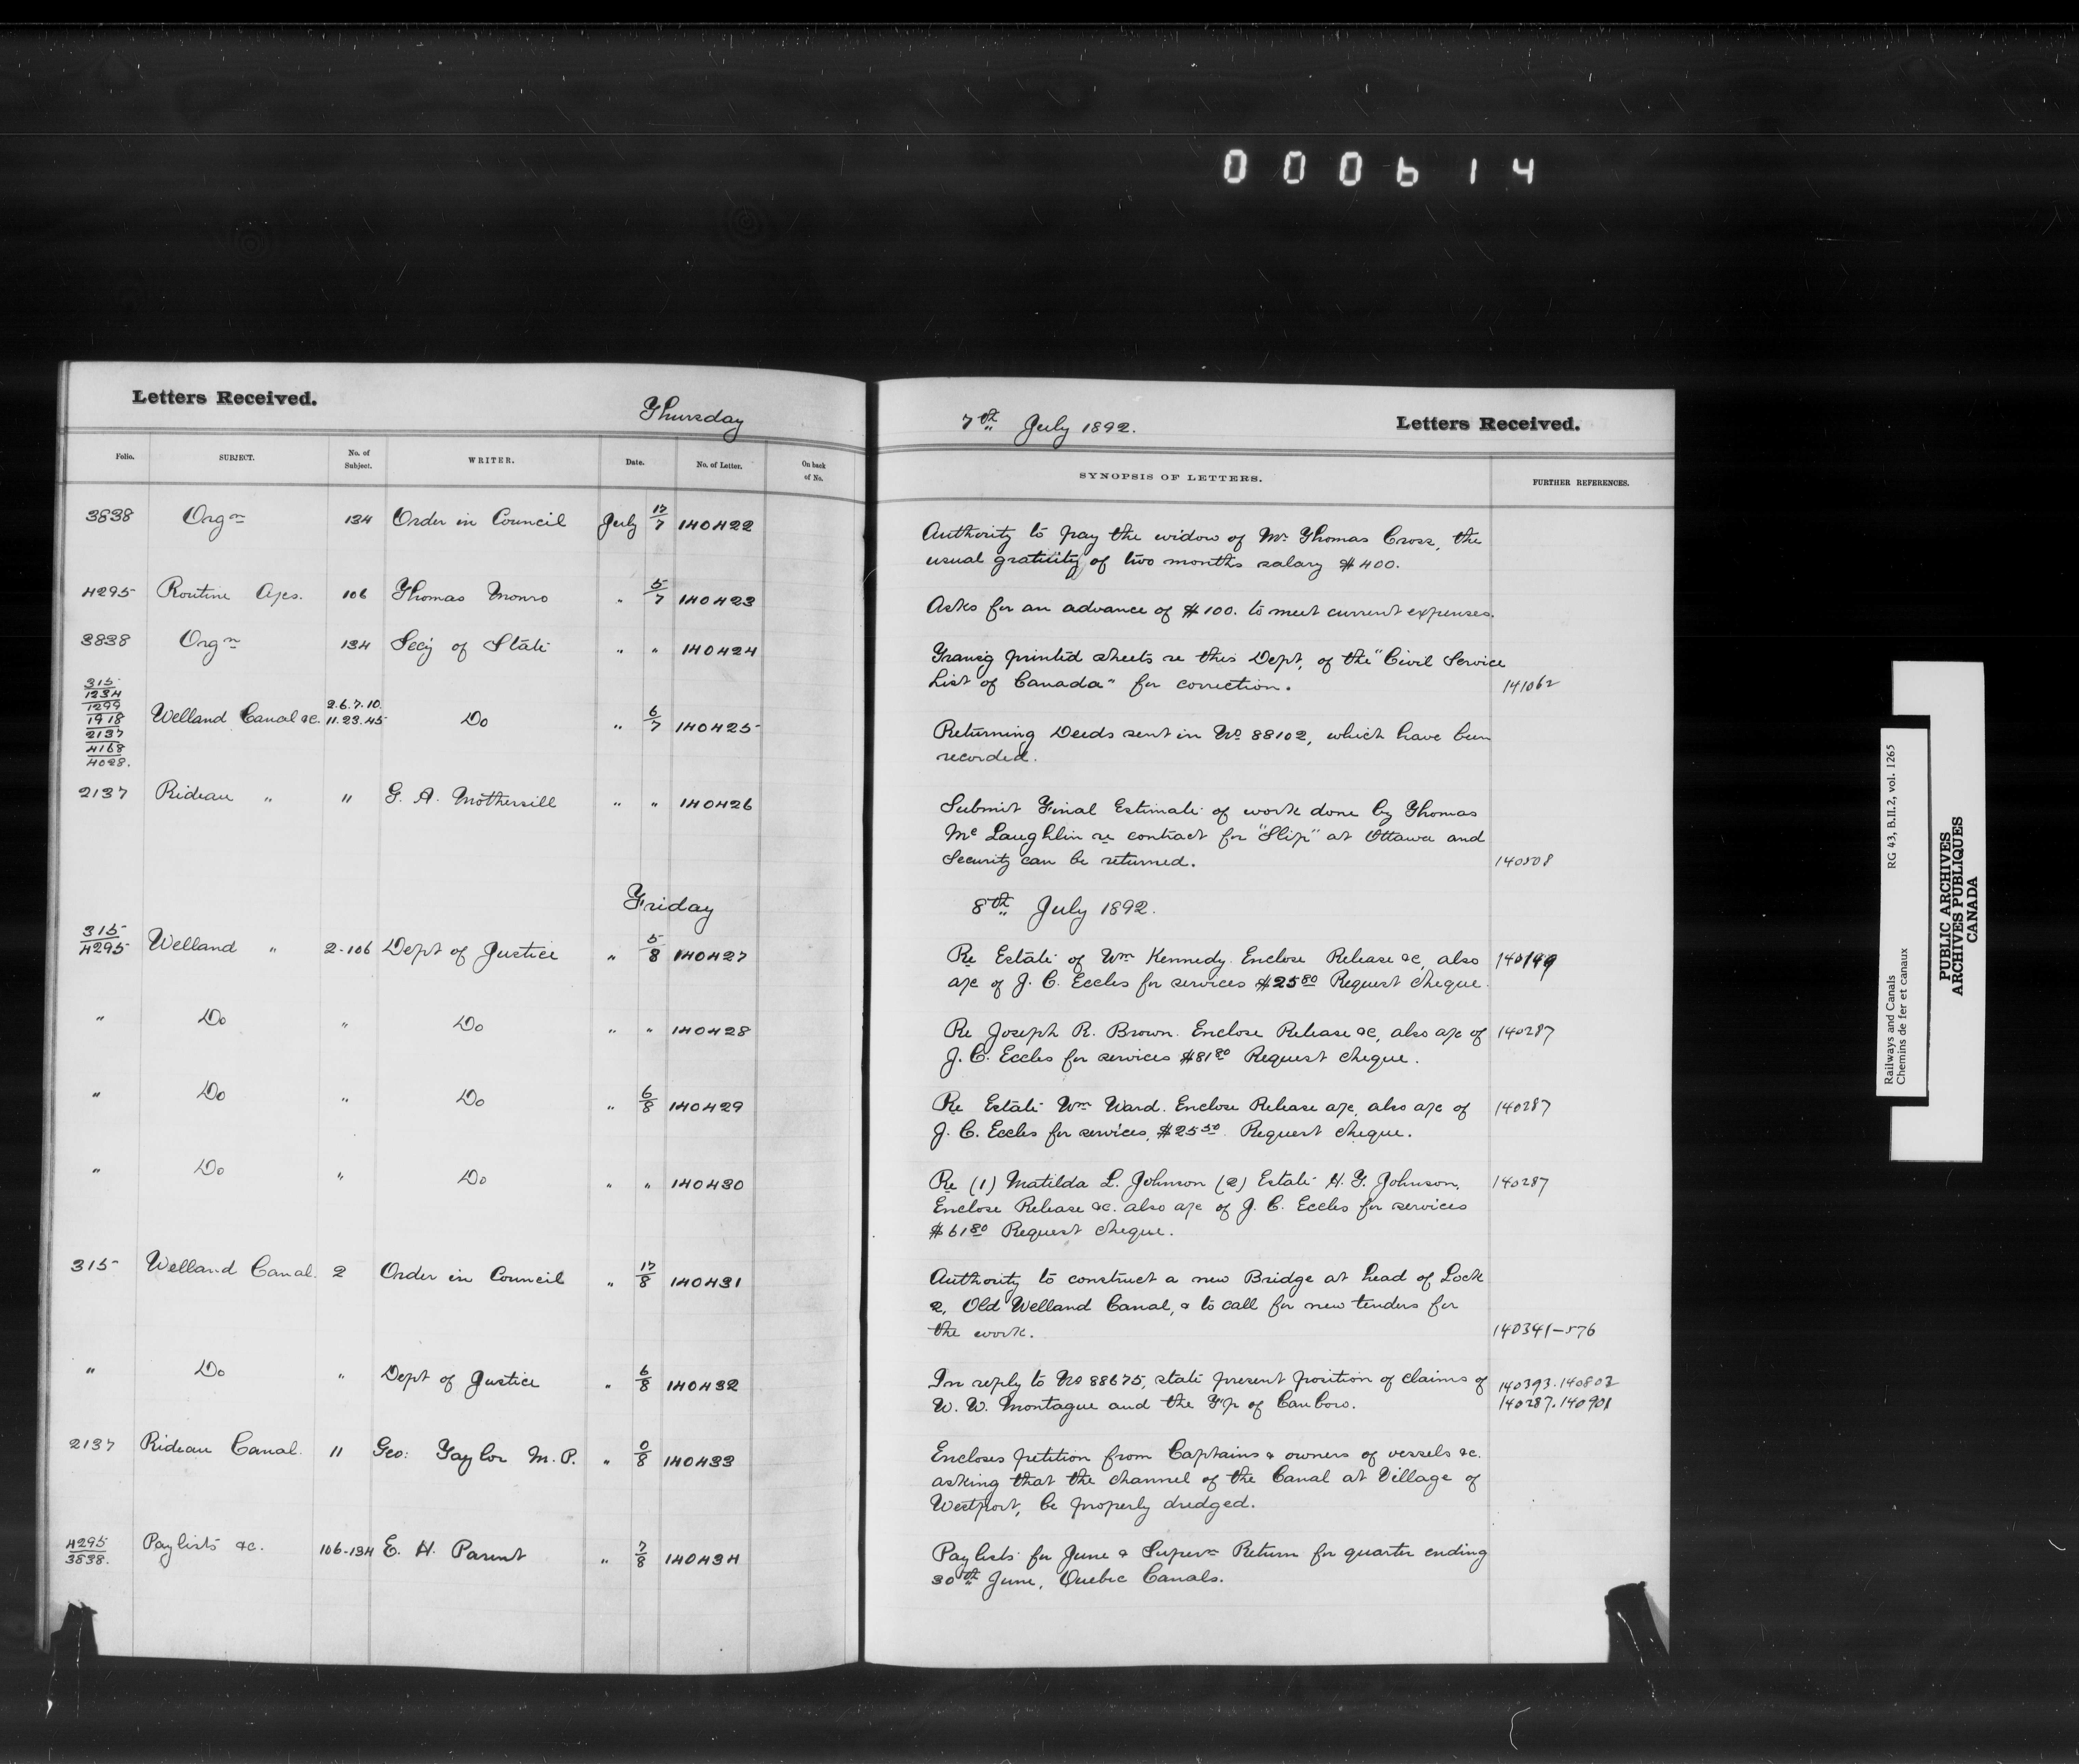 000614
Letters Received.
Thursday
7th July 1892.
Letters Received.
Folio. SUBJECT. No. of Subject. WRITER. Date. No. of Letter. On back of No. SYNOPSIS OF LETTERS. FURTHER REFERENCES.
3838 Orgn 134 Order in Council July 17/7 140422 Authority to pay the widow of Mr Thomas Cross, the
usual gratuity of two months salary $400.
4295 Routine A/cs. 106 Thomas Monro " 5/7 140423 Asks for an advance of $100. to meet current expenses.
3838 Orgn 134 Secy of State " " 140424 Transg printed sheets re this Dept, of the "Civil Service
List of Canada" for correction. 141062
315
1234
1299
1918
2137
4168
4028.
Welland Canal &c. 2.6.7.10.
11.23.45 Do " 6/7 140425 Returning Deeds sent in No 88102, which have been
recorded.
2137 Rideau " 11 G. A. Mothersill " " 140426 Submit Final Estimate of work done by Thomas
McLaughlin re contract for "Slip" at Ottawa and
Security can be returned. 140508
Friday 8th July 1892.
315/4295 Welland " 2-106 Dept of Justice " 5/8 140427 Re Estate of Wm Kennedy. Enclose Release &c, also 140149
a/c of J. C. Eccles for services $25 80 Request cheque.
" Do " Do " " 140428 Re Joseph R. Brown. Enclose Release &c, also a/c of 140287
J. C. Eccles for services $81 80 Request cheque.
" Do " Do " 6/8 140429 Re Estate Wm Ward. Enclose Release a/c, also a/c of 140287
J. C. Eccles for services, $25 50. Request cheque.
" Do " Do " " 140430 Re (1) Matilda L. Johnson (2) Estate H. G. Johnson, 140287
Enclose Release &c. also a/c of J. C. Eccles for services
$61 80 Request cheque.
315 Welland Canal. 2 Order in Council " 17/8 140431 Authority to construct a new Bridge at head of Lock
2, Old Welland Canal, & to call for new tenders for
the work. 140341-576
" Do " Dept of Justice " 6/8 140432 In reply to No 88675, state present position of claims of 140393.140802
W. W. Montague and the T'p of Canboro. 140287.140901
2137 Rideau Canal. 11 Geo: Taylor M.P. " 0/8 140433 Encloses petition from Captains & owners of vessels &c.
asking that the channel of the Canal at Village of
Westport, be properly dredged.
4295/3838. Paylists &c. 106-134 E. H. Parent " 7/8 140434 Paylists for June & Supern Return for quarter ending
30th June, Quebec Canals.
Railways and Canals RG 43, B.II.2, vol. 1265
Chemins de fer et canaux
PUBLIC ARCHIVES
ARCHIVES PUBLIQUES
CANADA